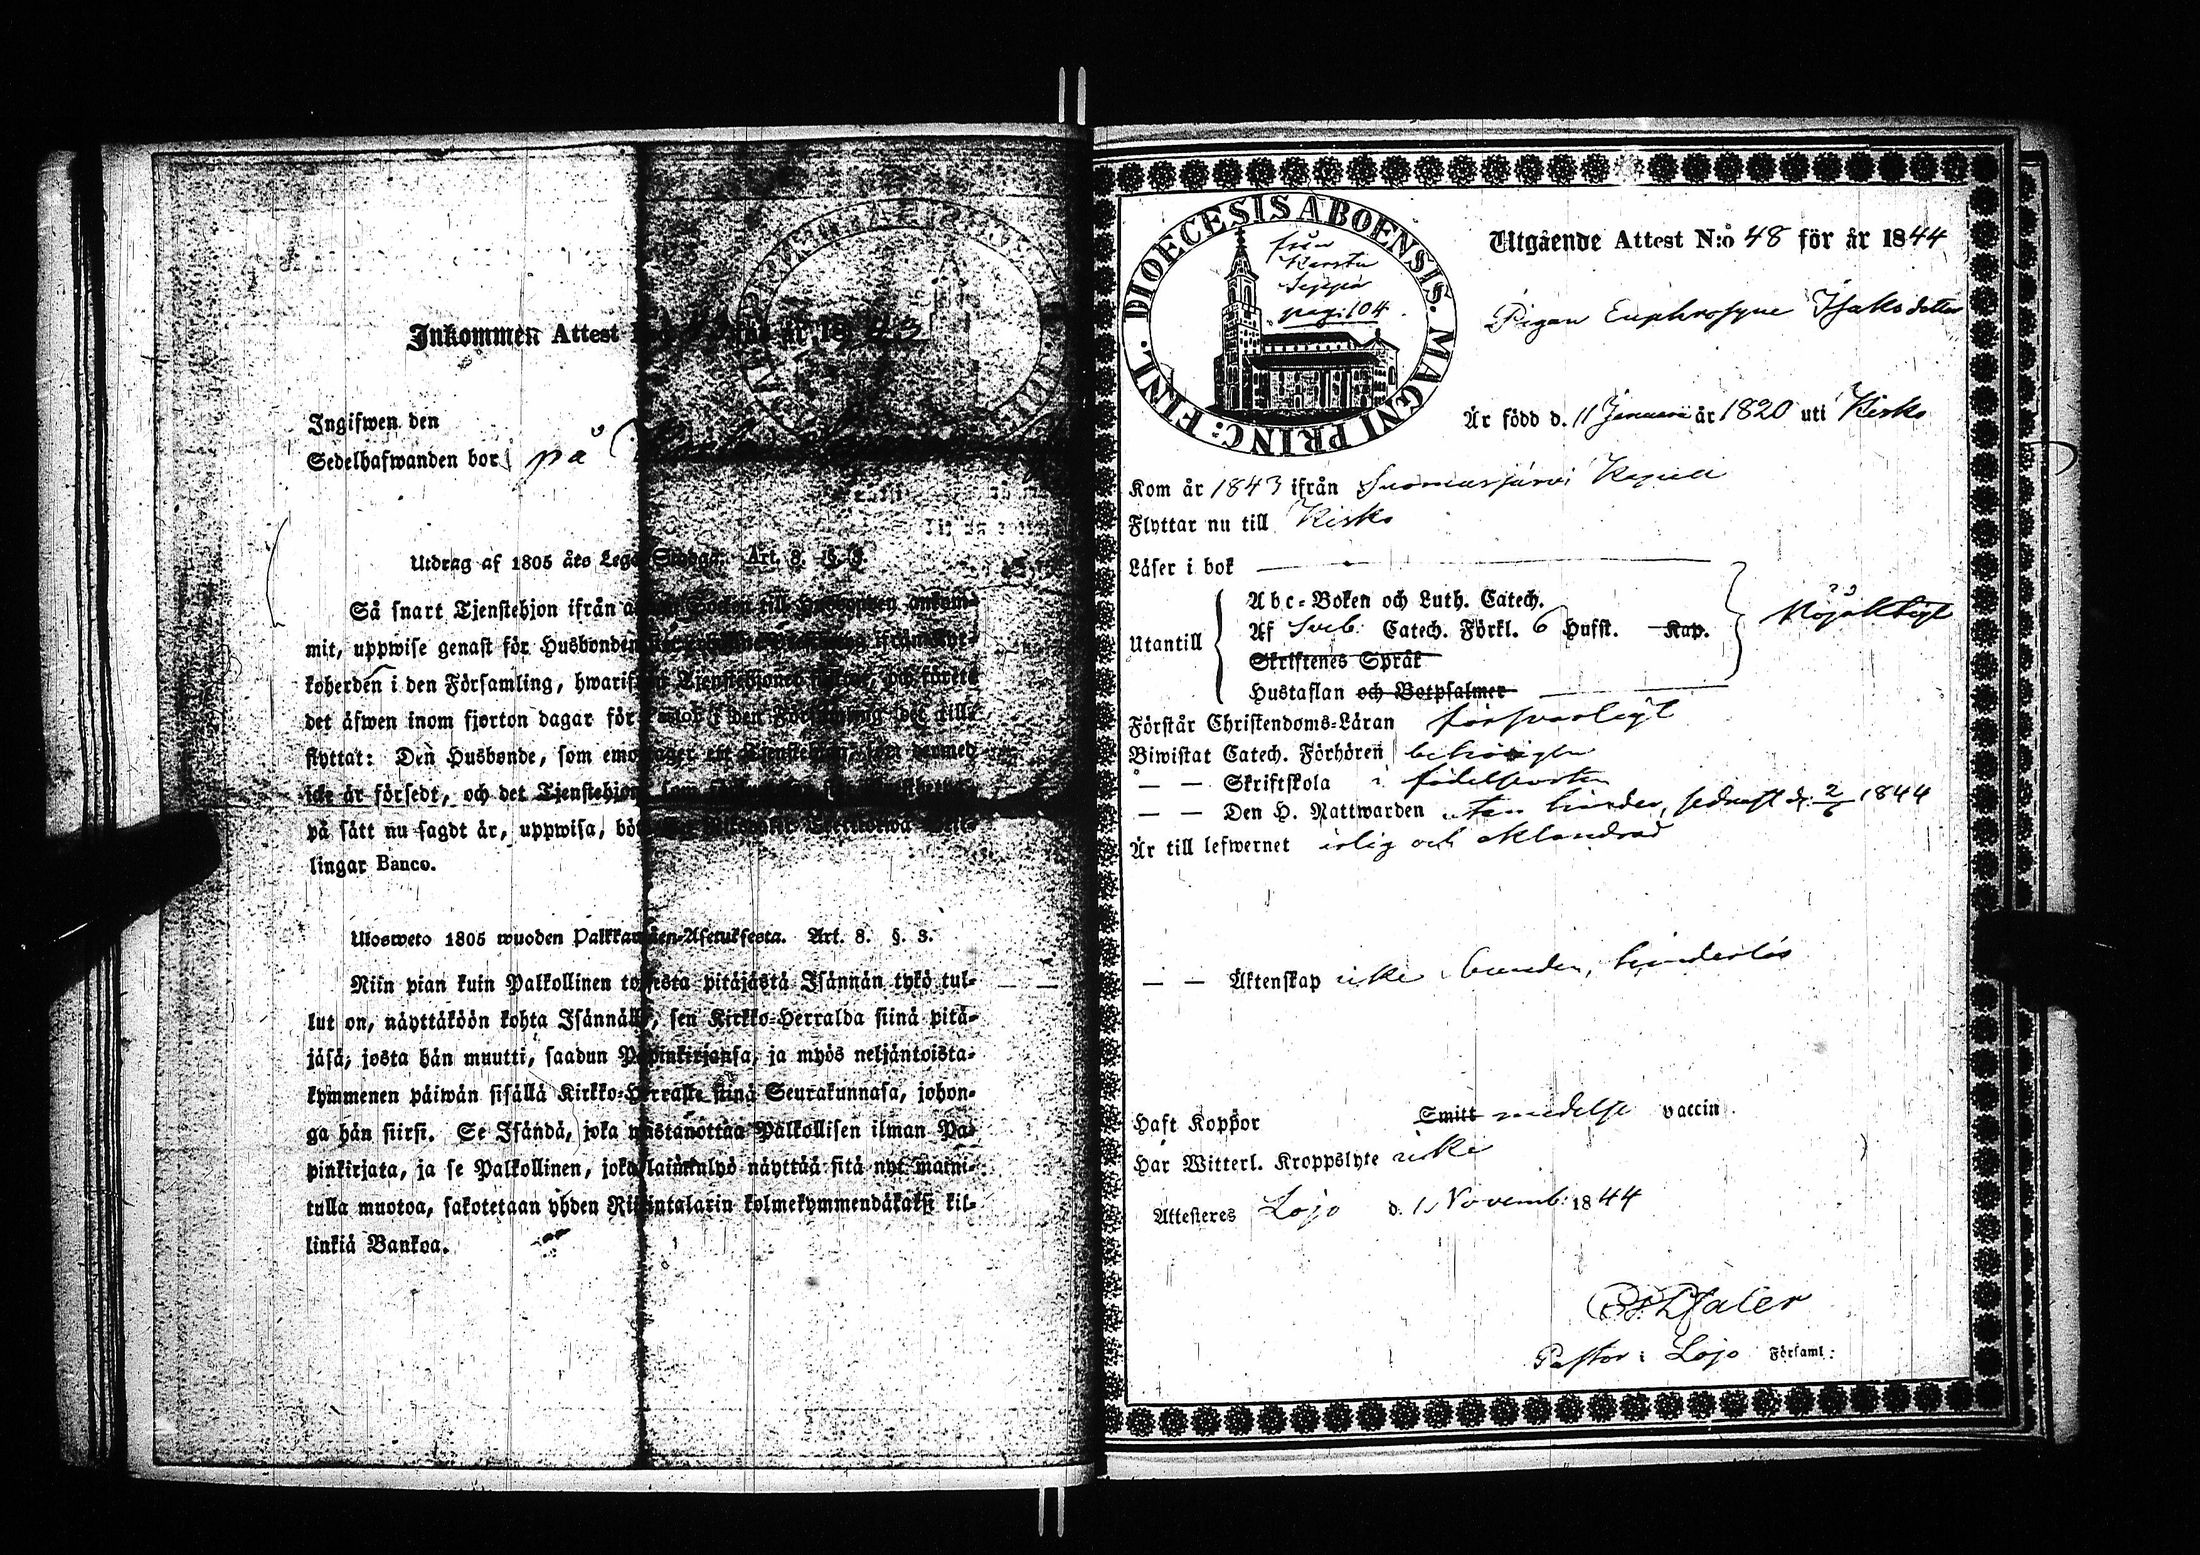 Inkommen Attest för år 1843
Ingifwen den
Sedelhafwanden bor på
Utdrag af 1805 års Lego Stadga. Art. 8. §. 3.
Så snart Tjenstehjon ifrån till ankom-
mit, uppwise genast för Husbonden ifrån Kyr-
koherden i den Församling, hwarifrån Tjenstehjonet
det äfwen inom fjorton dagar för i den Församling det till-
flyttat: Den Husbonde, som emottager ett Tjenstehjon, som dermed
icke är försedt, och det Tjenstehjon, som
på sätt nu sagdt är, uppwisa, böte skil-
lingar Banco.
Ulosweto 1805 wuoden Palkkawäen-Asetuksesta. Art. 8. §. 3.
Niin pian kuin Palkollinen toisesta pitäjästä Isännän tykö tul-
lut on, näyttäköön kohta Isännälle, sen Kirkko-Herralda siinä pitä-
jäsä, josta hän muutti, saadun Papinkirjansa, ja myös neljäntoista-
kymmenen päiwän sisällä Kirkko-Herralle siinä Seurakunnasa, johon-
ga hän siirsi. Se Isändä, joka wastanottaa Palkollisen ilman Pa-
pinkirjata, ja se Palkollinen, joka laiminlyö näyttää sitä nyt maini-
tulla muotoa, sakotetaan yhden Riksintalarin kolmekymmendäkaksi kil-
linkiä Bankoa.
DIOECESIS ABOENSIS. MAGNI PRINC: FINL.
från
Karstu
Seppä
pag: 104
Utgående Attest N:o 48 för år 1844
Pigan Euphrosyne Isaksdotter
Är född d. 11 Januari år 1820 uti Kisko
Kom år 1843 ifrån Suomusjärvi Kapell
Flyttar nu till Kisko
Läser i bok
Utantill
Abc-Boken och Luth. Catech.
Af Sveb. Catech. Förkl. 6 Hufst. Kap.
Skriftenes Språk
Hustaflan och Botpsalmer
Nöjaktigt
Förstår Christendoms-Läran försvarligt
Biwistat Catech. Förhören behörigen
— — Skriftskola i födelseorten
— — Den H. Nattwarden utan hinder, sednast d. 2/6 1844
Är till lefwernet ärlig och oklandrad
— — Äktenskap icke bunden, hinderlös
Haft Koppor Smitt medelst vaccin.
Har Witterl. Kroppslyte icke
Attesteres Lojo d. 1 Novemb: 1844
Pfaler
Pastor i Lojo Församl: